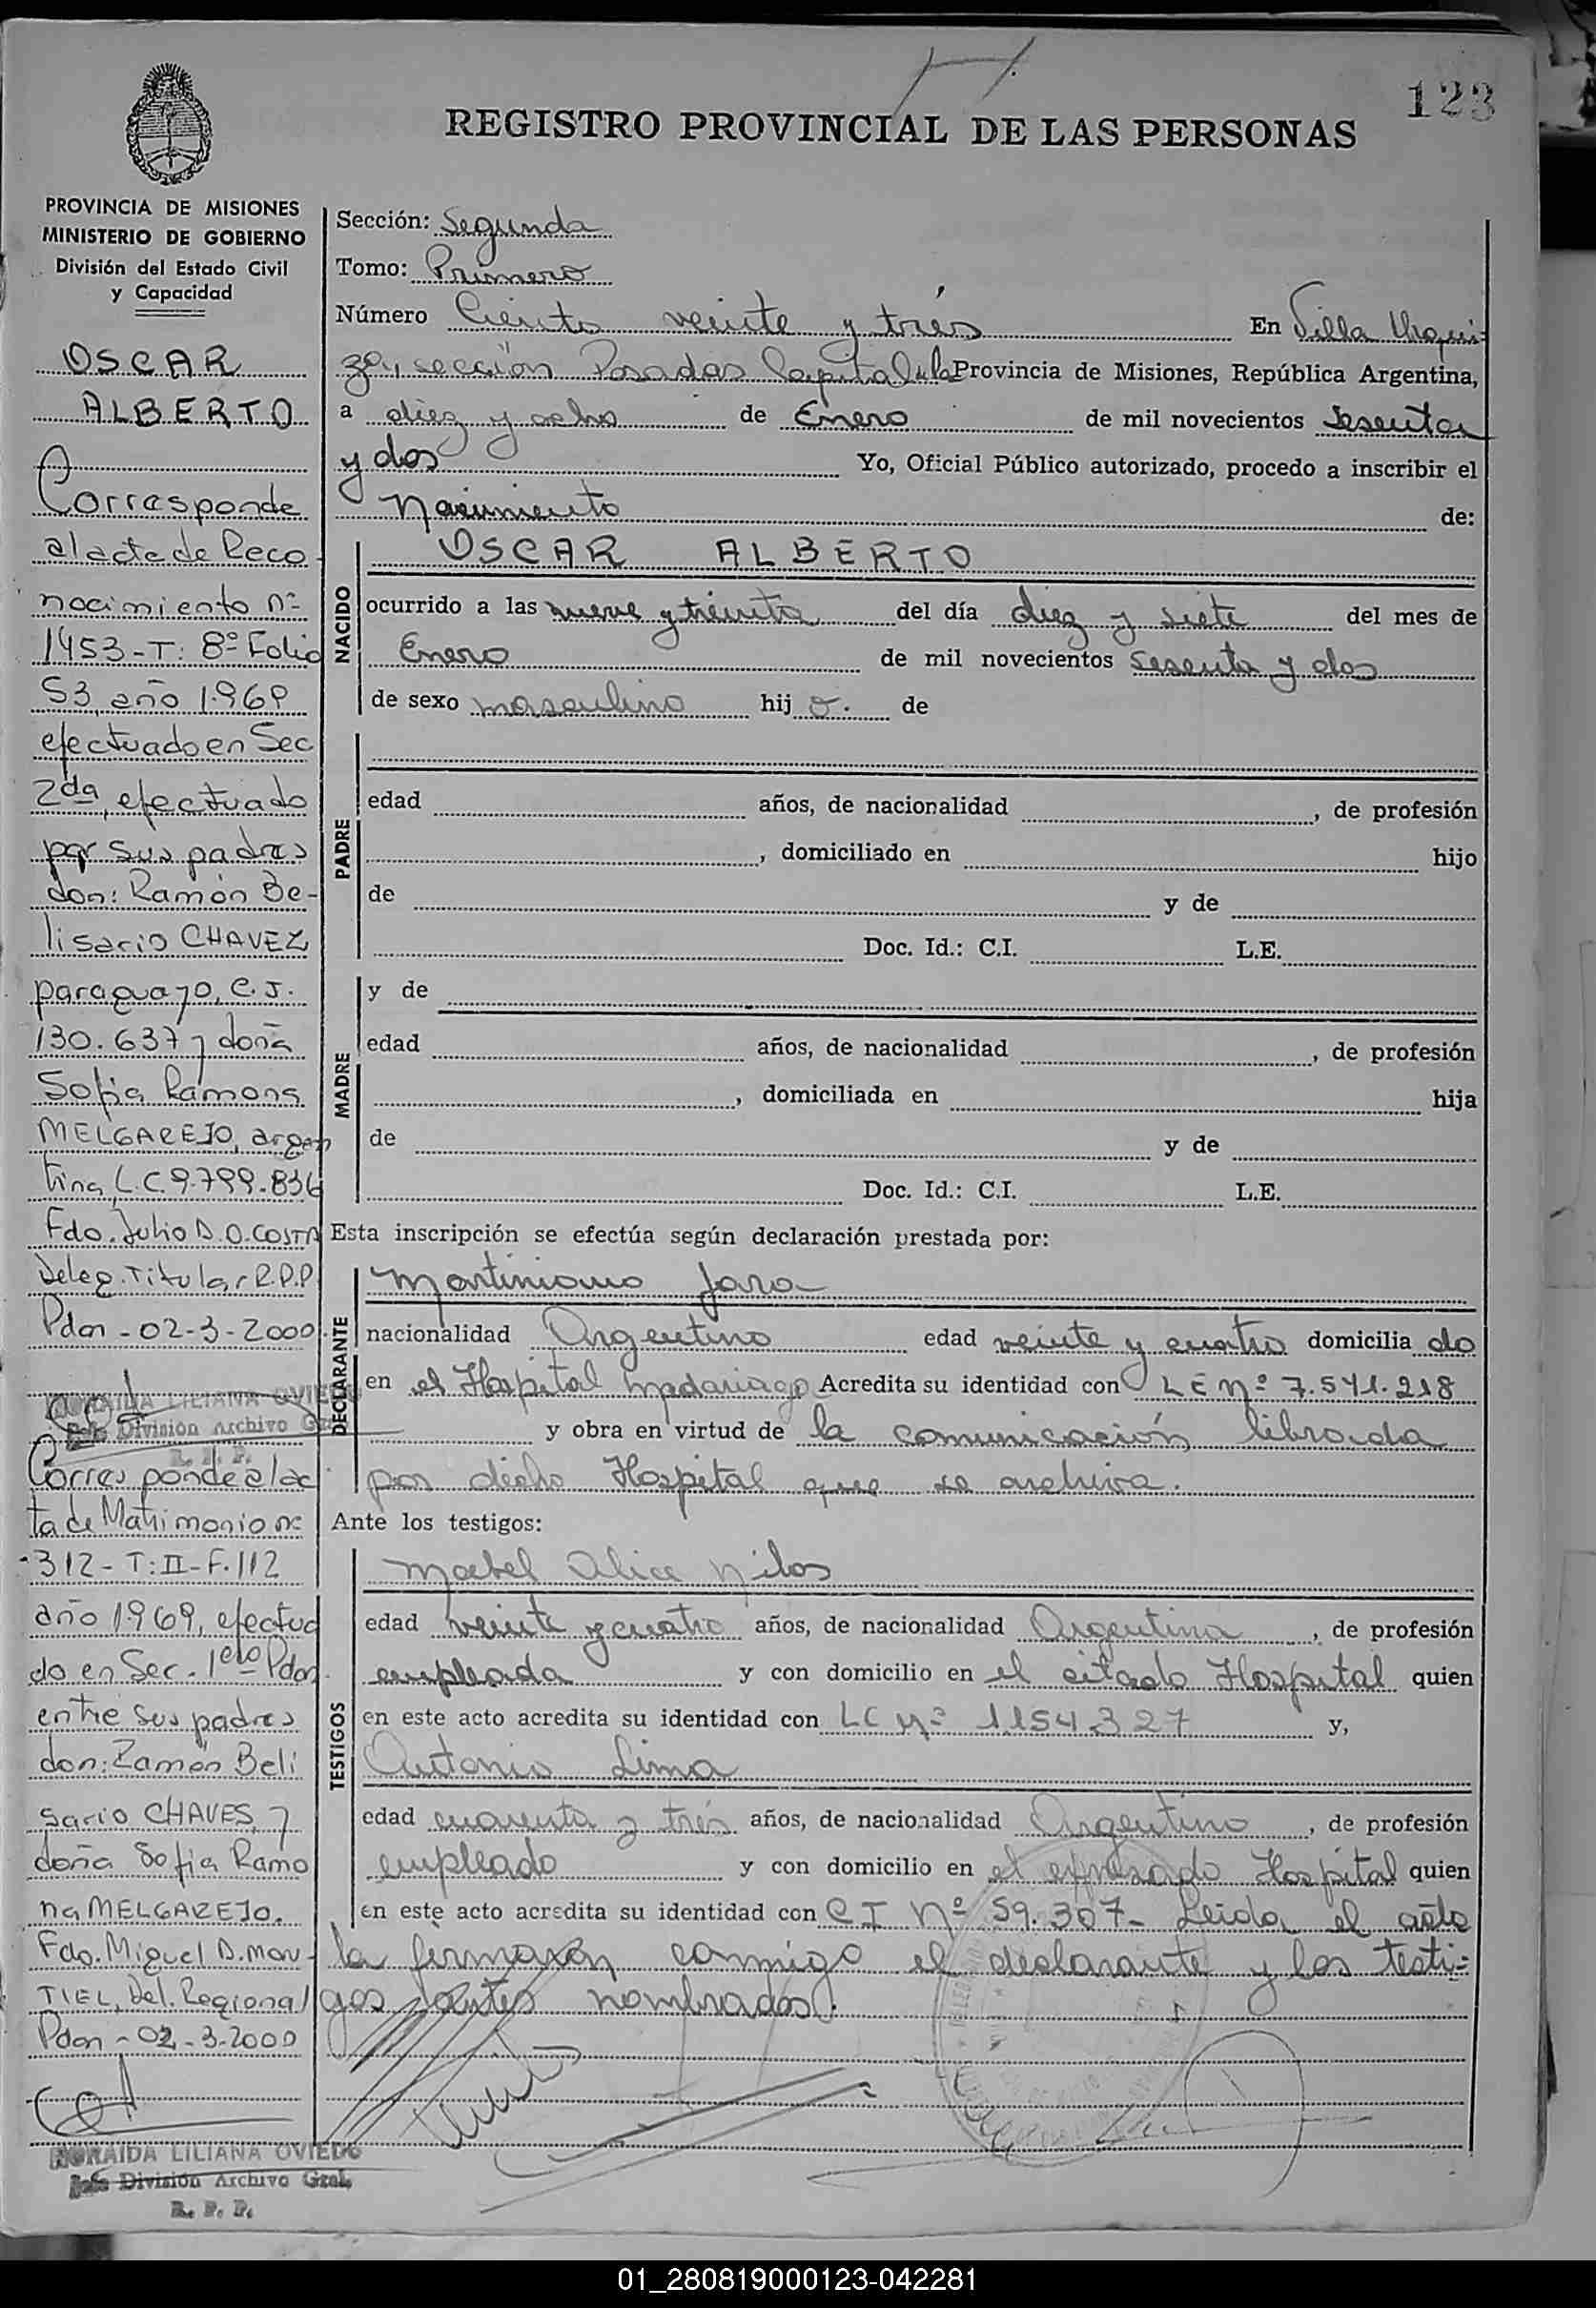 123
REGISTRO PROVINCIAL DE LAS PERSONAS
PROVINCIA DE MISIONES
MINISTERIO DE GOBIERNO
División del Estado Civil
y Capacidad
OSCAR
ALBERTO
Corresponde
al acta de Reco
nocimiento nº
1453-T: 8º Folio
53, año 1.969
efectuado en Sec
2da, efectuado
por sus padres
don: Ramón Be-
lisario CHAVEZ
paraguayo, C.I.
130.637 y doña
Sofia Ramona
MELGAREJO, argen
tina, L.C. 9.799.836
Fdo. Julio D. O. COSTA
Deleg. Titular R.P.P
Pdas - 02-3-2000
LILIANA OVIEDO
Jefe División Archivo Gral.
R. P. P.
Corresponde al ac
ta de Matrimonio nº
312-T:II-F.112
año 1969, efectua
do en Sec. 1era Pdas
entre sus padres
don: Ramón Beli
sario CHAVES, y
doña Sofia Ramo
na MELGAREJO.
Fdo. Miguel D. MON-
TIEL, Del. Regional
Pdas - 02-3-2000
LILIANA OVIEDO
Jefe División Archivo Gral.
R. P. P.
Sección: Segunda
Tomo: Primero
Número Ciento veinte y trés En Villa Urqui-
za, sección Posadas Capital de la Provincia de Misiones, República Argentina,
a diez y ocho de Enero de mil novecientos Sesenta
y dos Yo, Oficial Público autorizado, procedo a inscribir el
Nacimiento de:
NACIDO
OSCAR ALBERTO
ocurrido a las nueve y treinta del día diez y siete del mes de
Enero de mil novecientos Sesenta y dos
de sexo masculino hij o. de
PADRE
edad años, de nacionalidad , de profesión
, domiciliado en hijo
de y de
Doc. Id.: C.I. L.E.
MADRE
y de
edad años, de nacionalidad , de profesión
, domiciliada en hija
de y de
Doc. Id.: C.I. L.E.
Esta inscripción se efectúa según declaración prestada por:
DECLARANTE
Martiniano Jara
nacionalidad Argentino edad veinte y cuatro domicilia do
en el Hospital Madariaga Acredita su identidad con L E Nº 7.541.218
y obra en virtud de la comunicación librada
por dicho Hospital que se archiva.
Ante los testigos:
TESTIGOS
Mabel Alice
edad veinte y cuatro años, de nacionalidad Argentina, de profesión
empleada y con domicilio en el citado Hospital quien
en este acto acredita su identidad con LC Nº 1154327 y,
Antonio Lima
edad cuarenta y trés años, de nacionalidad Argentino, de profesión
empleado y con domicilio en el expresado Hospital quien
en este acto acredita su identidad con C I Nº 59.307- Leida el acta
la firmaron conmigo el declarante y los testi-
gos antes nombrados.
01_280819000123-042281